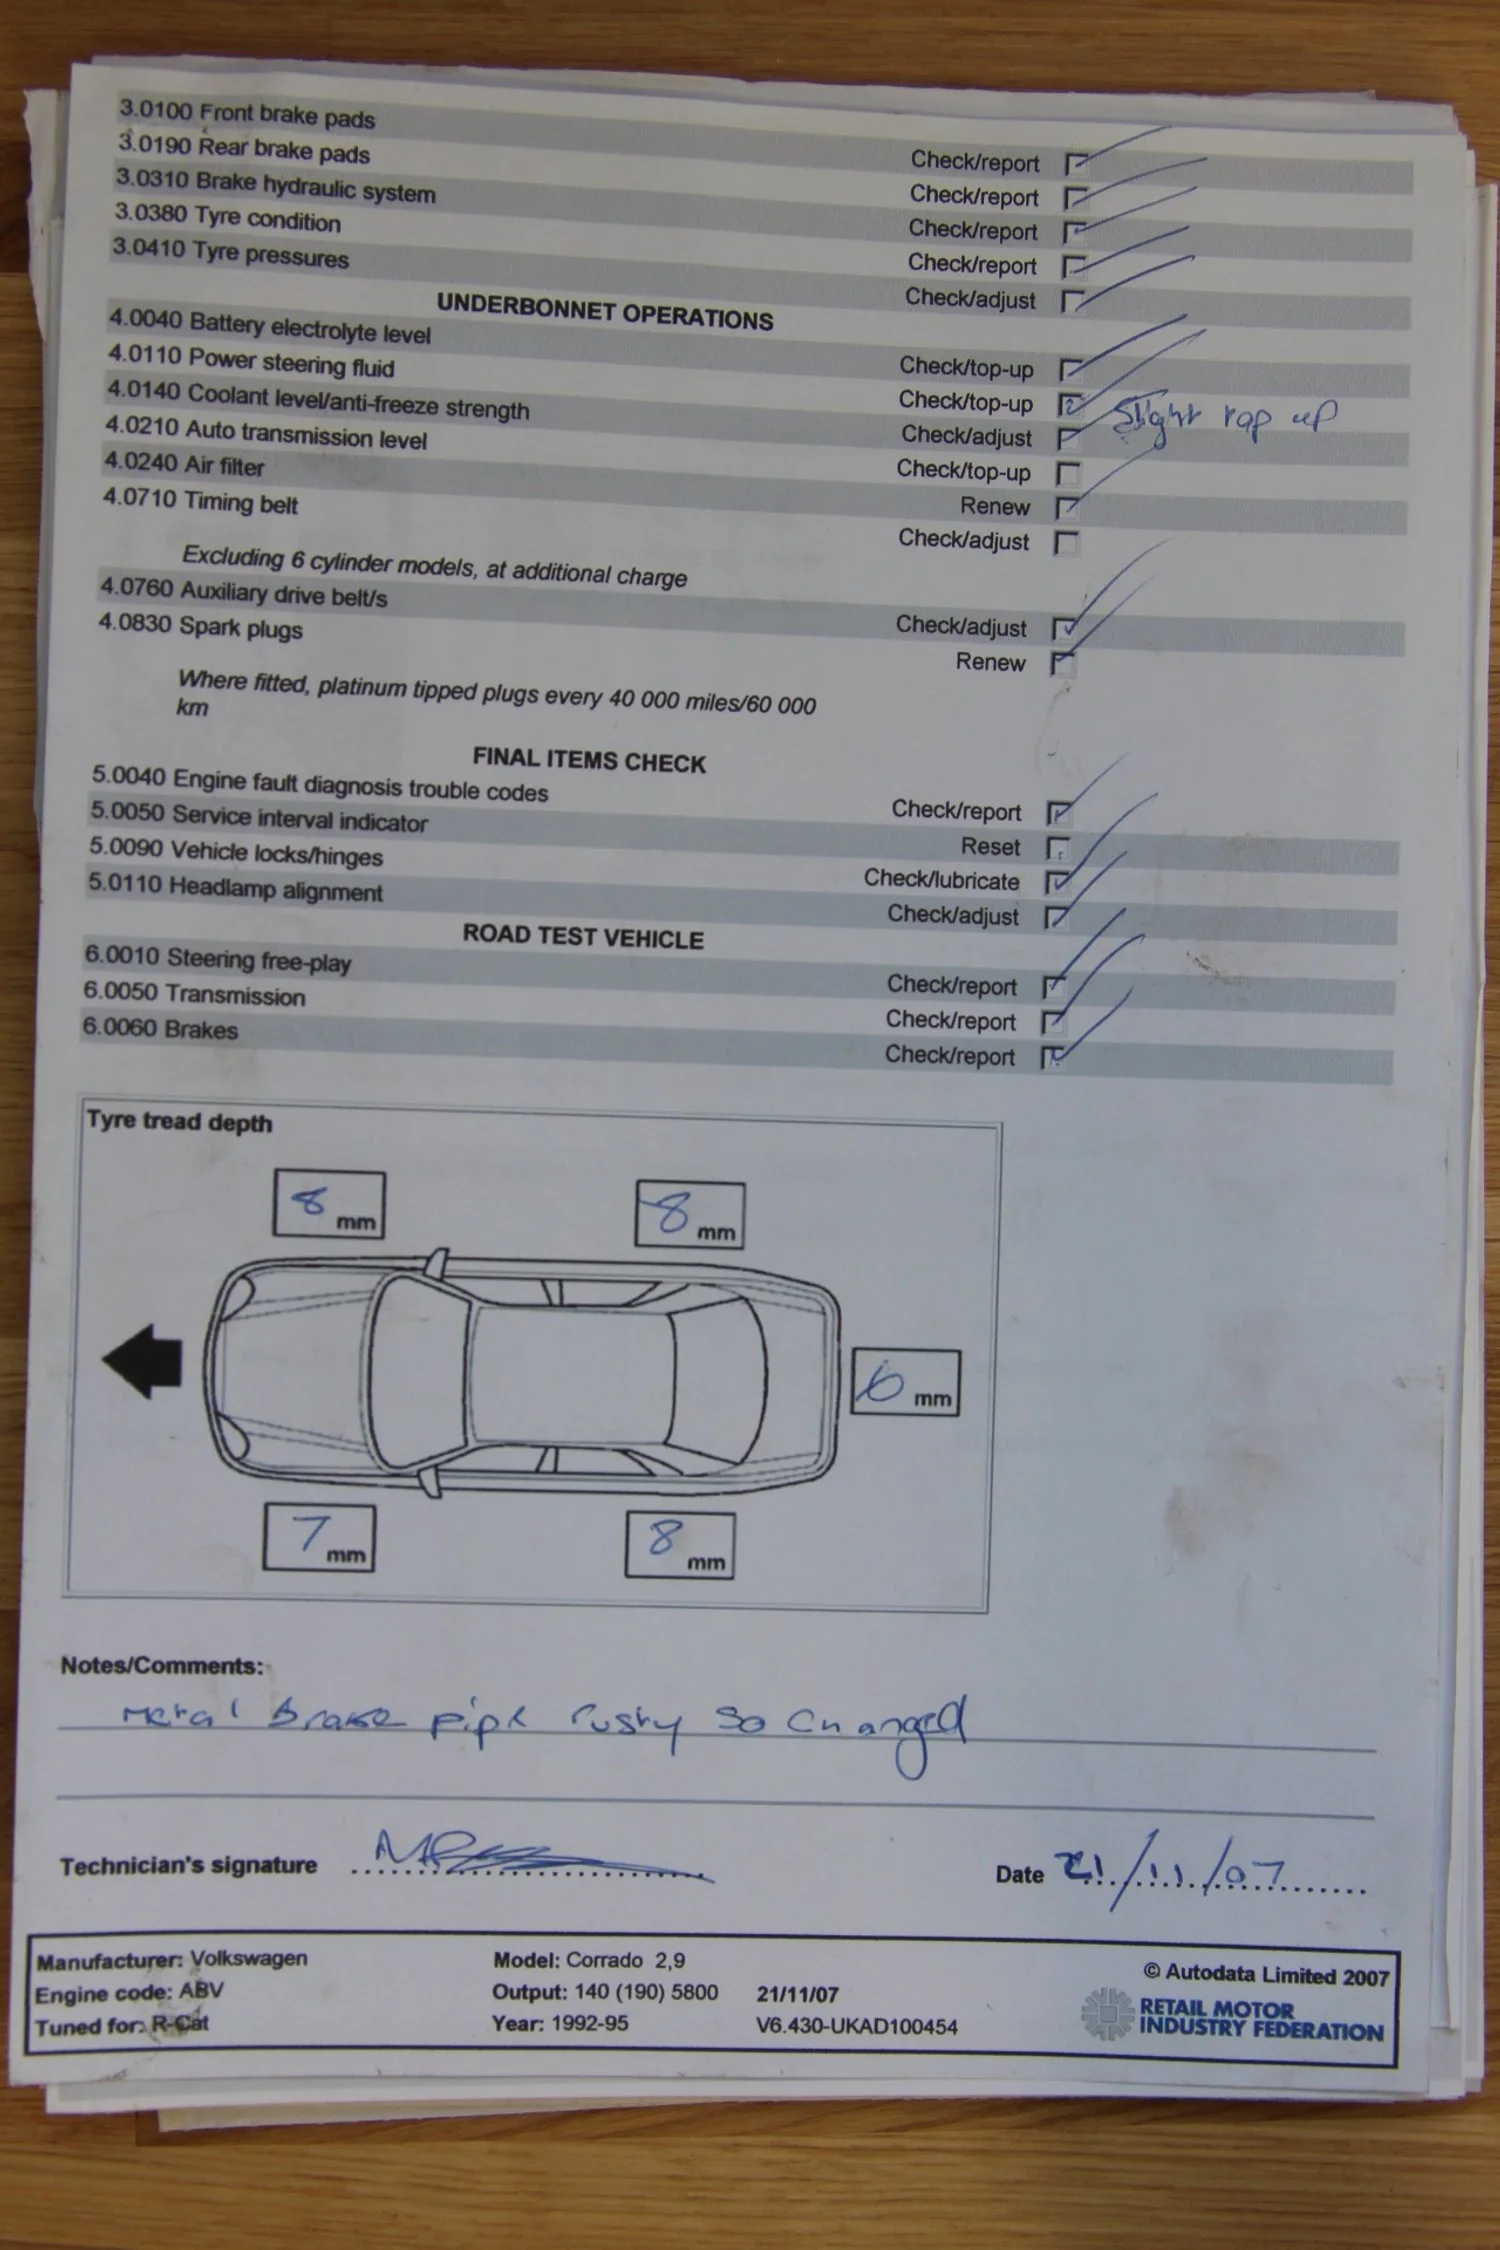 3.0100 Front brake pads
Check/report
3.0190 Rear brake pads
Check/report
3.0310 Brake hydraulic system
Check/report
3.0380 Tyre condition
Check/report
3.0410 Tyre pressures
Check/adjust
UNDERBONNET OPERATIONS
4.0040 Battery electrolyte level
Check/top-up
4.0110 Power steering fluid
Check/top-up
Slight top up
4.0140 Coolant level/anti-freeze strength
Check/adjust
4.0210 Auto transmission level
Check/top-up
4.0240 Air filter
Renew
4.0710 Timing belt
Check/adjust
Excluding 6 cylinder models, at additional charge
4.0760 Auxiliary drive belt/s
Check/adjust
4.0830 Spark plugs
Renew
Where fitted, platinum tipped plugs every 40 000 miles/60 000
km
FINAL ITEMS CHECK
5.0040 Engine fault diagnosis trouble codes
Check/report
5.0050 Service interval indicator
Reset
5.0090 Vehicle locks/hinges
Check/lubricate
5.0110 Headlamp alignment
Check/adjust
ROAD TEST VEHICLE
6.0010 Steering free-play
Check/report
6.0050 Transmission
Check/report
6.0060 Brakes
Check/report
Tyre tread depth
8 mm
8 mm
6 mm
7 mm
8 mm
Notes/Comments:
Metal Brake pipe rusty so changed
Technician's signature
Date 21/11/07
Manufacturer: Volkswagen
Model: Corrado 2,9
© Autodata Limited 2007
Engine code: ABV
Output: 140 (190) 5800
21/11/07
Tuned for: R-Cat
Year: 1992-95
V6.430-UKAD100454
RETAIL MOTOR
INDUSTRY FEDERATION